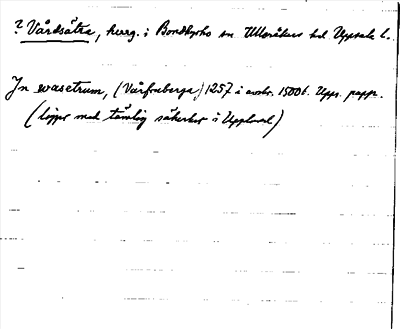 ? Vårdsätra, herrg. i Bondkyrko sn Ulleråkers hd. Uppsala l.
Jn wasetrum, (Vårfruberga) 1257 i avskr. 1500 t. Upps. papp.
(ligger med tämlig säkerhet i Uppland)